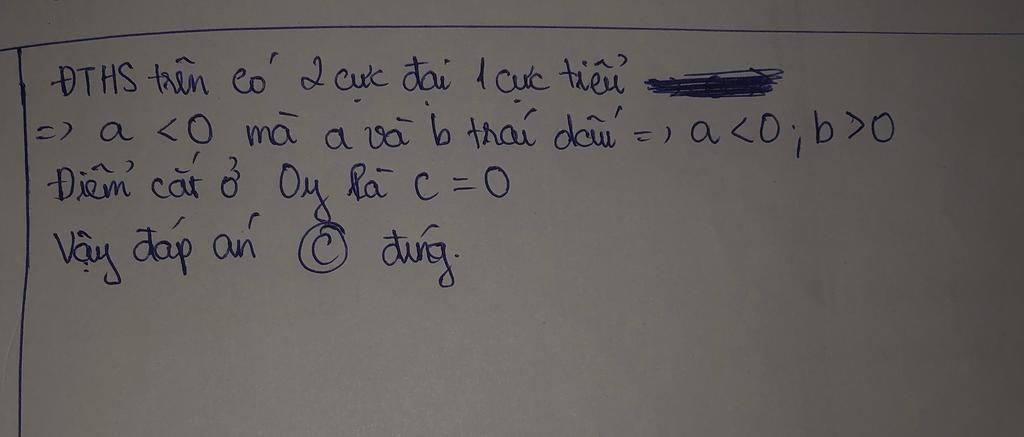 ĐTHS trên có 2 cực đại 1 cực tiểu
=> a < 0 mà a và b trái dấu => a < 0 ; b > 0
Điểm cắt ở Oy là c = 0
Vậy đáp án C đúng.